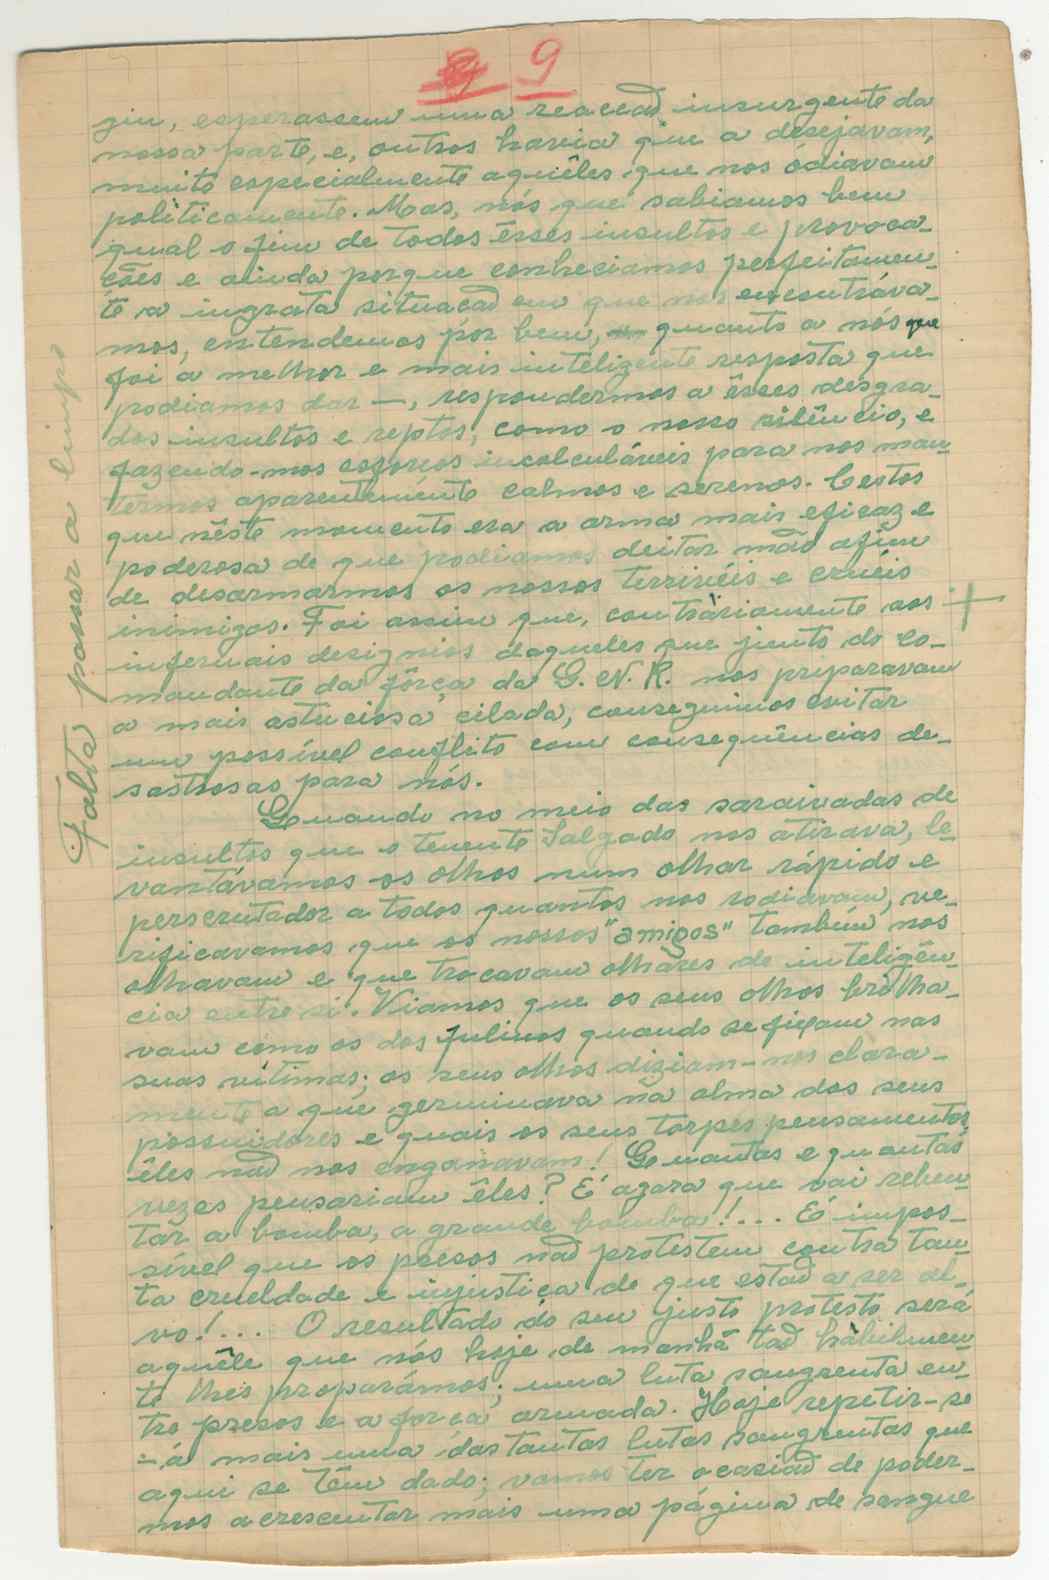 9
giu, esperassem uma reacção insurgente da
nossa parte, e, outros havia que a desejavam,
muito especialmente aquêles que nos ódiavam
politicamente. Mas, nós que sabiamos bem
qual o fim de todos êsses insultos e provoca-
ções e ainda porque conheciamos perfeitamen-
te a ingrata situação em que nos encontráva-
mos, entendemos por bem, quanto a nós que
foi a melhor e mais inteligente resposta que
podiamos dar —, respondermos a êsses desgra-
dos insultos e reptos, como o nosso silêncio, e
fazendo-mos esforços incalculáveis para nos man-
termos aparentemente calmos e serenos. Certos
que nêste momento era a arma mais eficaz e
poderosa de que podiamos deitar mão afim
de desarmarmos os nossos terriveis e cruéis
inimigos. Foi assim que, contràriamente aos
infernais designios daqueles que junto do co-
mandante da fôrça da G. N. R. nos preparavam
a mais astuciosa cilada, conseguimos evitar
um possível conflito com consequências de-
sastrosas para nós.
Quando no meio das saraivadas de
insultos que o tenente Salgado nos atirava, le-
vantávamos os olhos num olhar rápido e
perscrutador a todos quantos nos rodiavam, ve-
rificavamos que os nossos "amigos" também nos
olhavam e que trocavam olhares de inteligên-
cia entre si. Viamos que os seus olhos brilha-
vam como os dos felinos quando se fixam nas
suas vitimas; os seus olhos diziam-nos clara-
mente o que germinava na alma dos seus
possuidores e quais os seus torpes pensamentos,
êles não nos enganavam! Quantas e quantas
vezes pensariam êles? É agora que vai reben-
tar a bomba, a grande bomba!... É impos-
sível que os presos não protestem contra tan-
ta crueldade e injustiça de que estão a ser al-
vo!... O resultado do seu justo protesto será
aquêle que nós hoje de manhã tão hàbilmen-
te lhes preparámos; uma luta sangrenta en-
tre presos e a força armada. Hoje repetir-se
-á mais uma das tantas lutas sangrentas que
aqui se têm dado; vamos ter ocasião de poder-
mos acrescentar mais uma página de sangue
Falta passar a limpo